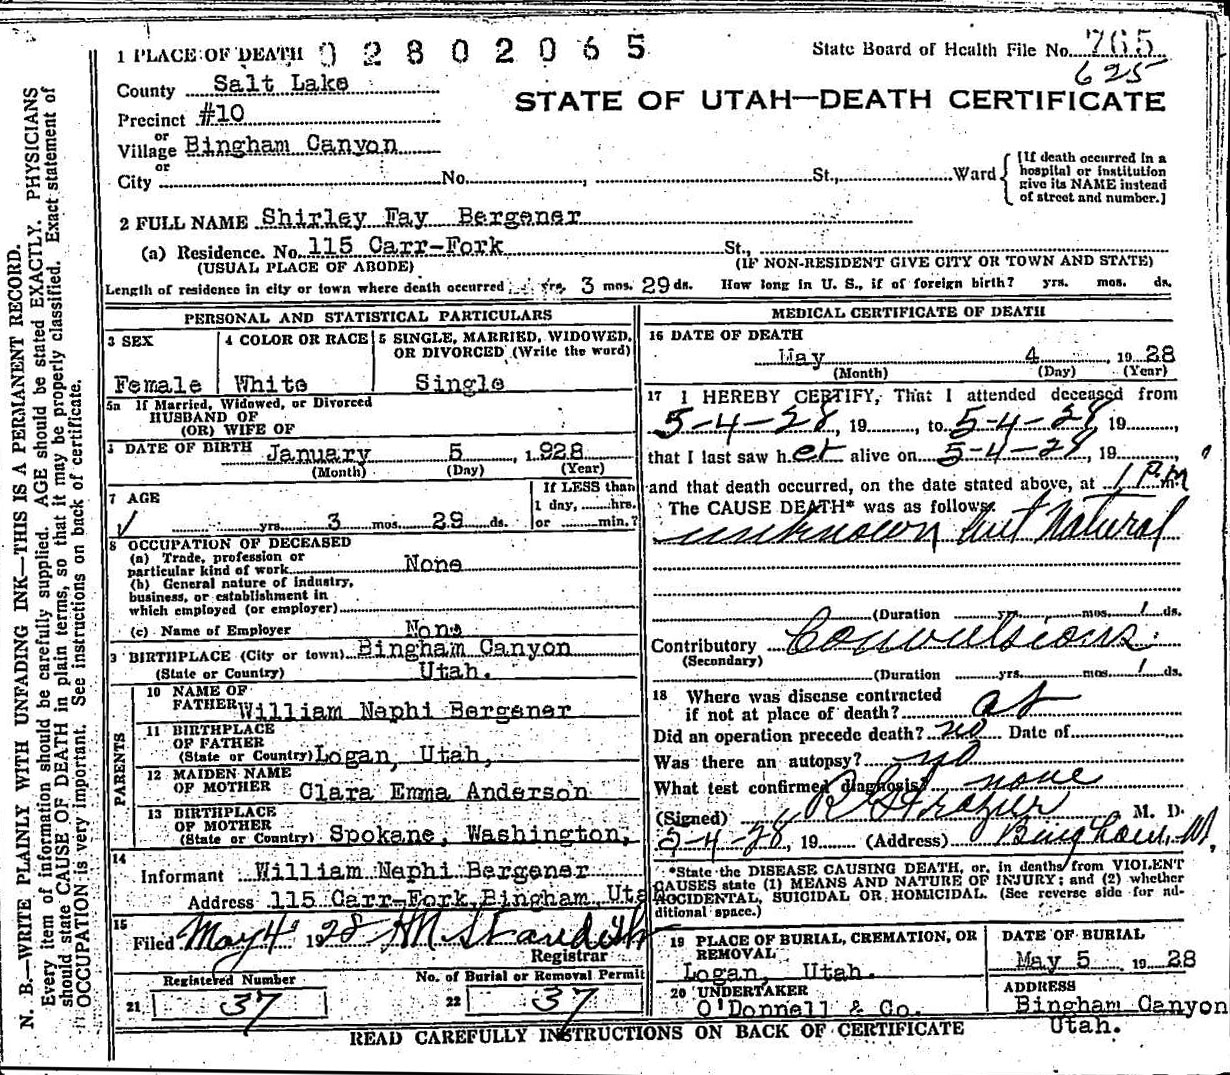 1 PLACE OF DEATH 02802065
State Board of Health File No. 765
625
County Salt Lake
STATE OF UTAH—DEATH CERTIFICATE
Precinct #10
or
Village Bingham Canyon
or
City No. , St., Ward
[If death occurred in a
hospital or institution
give its NAME instead
of street and number.]
2 FULL NAME Shirley Fay Bergener
(a) Residence. No. 115 Carr-Fork St.,
(USUAL PLACE OF ABODE) (IF NON-RESIDENT GIVE CITY OR TOWN AND STATE)
Length of residence in city or town where death occurred yrs. 3 mos. 29 ds. How long in U. S., if of foreign birth? yrs. mos. ds.
PERSONAL AND STATISTICAL PARTICULARS
3 SEX
Female
4 COLOR OR RACE
White
5 SINGLE, MARRIED, WIDOWED,
OR DIVORCED (Write the word)
Single
5a If Married, Widowed, or Divorced
HUSBAND OF
(OR) WIFE OF
DATE OF BIRTH January 5 , 1928
(Month) (Day) (Year)
7 AGE
yrs. 3 mos. 29 ds.
If LESS than
1 day, hrs.
or min.?
8 OCCUPATION OF DECEASED
(a) Trade, profession or
particular kind of work None
(b) General nature of industry,
business, or establishment in
which employed (or employer)
(c) Name of Employer None
9 BIRTHPLACE (City or town) Bingham Canyon
(State or Country) Utah.
PARENTS
10 NAME OF
FATHER William Nephi Bergener
11 BIRTHPLACE
OF FATHER
(State or Country) Logan, Utah,
12 MAIDEN NAME
OF MOTHER Clara Emma Anderson
13 BIRTHPLACE
OF MOTHER
(State or Country) Spokane, Washington,
14
Informant William Nephi Bergener
Address 115 Carr-Fork, Bingham, Uta
15
Filed May 4 1928 H M Standish
Registrar
Registered Number
21 37
No. of Burial or Removal Permit
22 37
MEDICAL CERTIFICATE OF DEATH
16 DATE OF DEATH
May 4 , 1928
(Month) (Day) (Year)
17 I HEREBY CERTIFY, That I attended deceased from
5-4-28, 19 , to 5-4-28, 19 ,
that I last saw her alive on 5-4-28, 19 ,
and that death occurred, on the date stated above, at 1 P.m.
The CAUSE DEATH* was as follows:
unknown but Natural
(Duration yrs. mos. 1 ds.
Contributory Convulsions.
(Secondary)
(Duration yrs. mos. 1 ds.
18 Where was disease contracted
if not at place of death? at
Did an operation precede death? no Date of
Was there an autopsy? no
What test confirmed diagnosis? none
(Signed) R G Frazier M. D.
5-4-28, 19 (Address) Bingham, Ut,
*State the DISEASE CAUSING DEATH, or, in deaths from VIOLENT
CAUSES state (1) MEANS AND NATURE OF INJURY; and (2) whether
ACCIDENTAL, SUICIDAL OR HOMICIDAL. (See reverse side for ad-
ditional space.)
19 PLACE OF BURIAL, CREMATION, OR
REMOVAL
Logan, Utah.
DATE OF BURIAL
May 5 , 1928
20 UNDERTAKER
O'Donnell & Co.
ADDRESS
Bingham Canyon
Utah.
READ CAREFULLY INSTRUCTIONS ON BACK OF CERTIFICATE
N. B.—WRITE PLAINLY WITH UNFADING INK—THIS IS A PERMANENT RECORD.
Every item of information should be carefully supplied. AGE should be stated EXACTLY. PHYSICIANS
should state CAUSE OF DEATH in plain terms, so that it may be properly classified. Exact statement of
OCCUPATION is very important. See instructions on back of certificate.